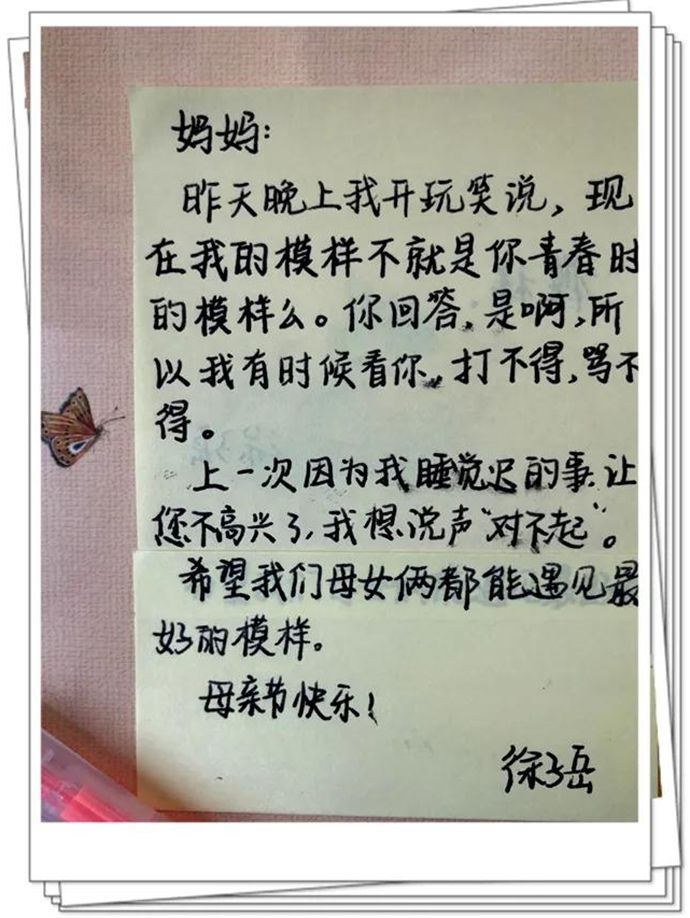 妈妈：
昨天晚上我开玩笑说，现
在我的模样不就是你青春时
的模样么。你回答，是啊，所
以我有时候看你，打不得，骂不
得。
上一次因为我睡觉迟的事让
您不高兴了，我想说声“对不起”。
希望我们母女俩都能遇见最
好的模样。
母亲节快乐！
徐子岳